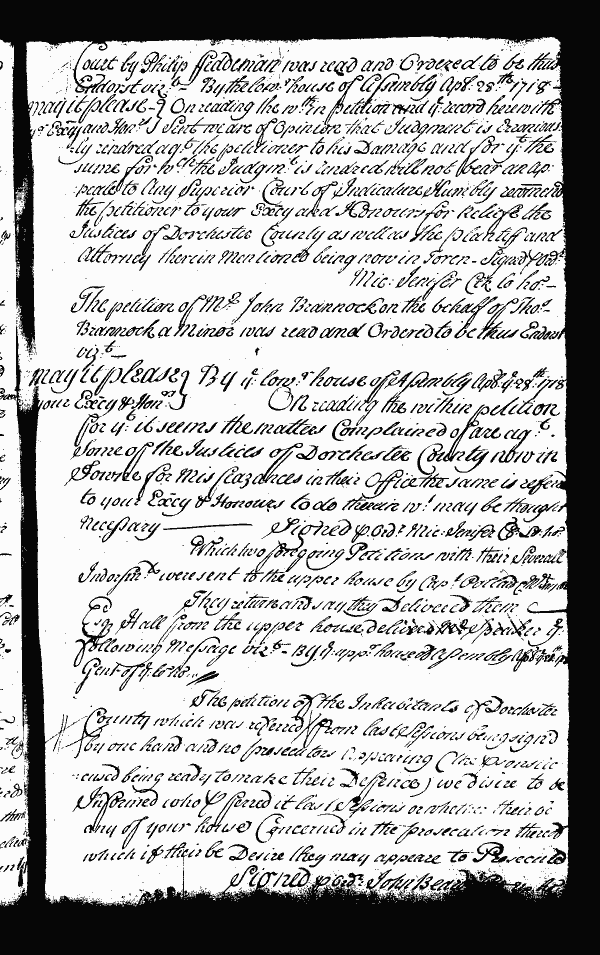 Court by Philip Feddeman was read and Ordered to be thus
Endorst vizt— By the lowr house of Assembly Apl. 28th 1718—
may it please } On reading the wthin petition and ye record herewith
yr Excy and Honrs } Sent we are of Opinion that Judgment is Erronious
:ly rendred agt the petitioner to his Damage and for yt the
sume for wch the Judgmt is rendred will not bear an Ap
:peale to Any Superior Court of Judicature Humbly recomend
the petitioner to your Excy and Honours for Reliefe the
Justices of Dorchester County as well as the plantiff and
Attorney therein mentioned being now in Toron— Signed p Ordr
Mic: Jenifer Clk lo hos—
The petition of Mr John Brannock on the behalf of Thos
Brannock a Minor was read and Ordered to be thus Endorst
vizt—
may it please } By ye lowr house of Assembly Apl ye 28th 1718
your Excy & Honrs } On reading the within petition
for yt it seems the matters Complained of are agt.
Some of the Justices of Dorchester County now in
Towne for Misfeazances in their Office the same is referrd
to your Excy & Honours to do therein wt may be thought
necessary —— Signed p Ordr Mic: Jenifer Cl: Lo: ho:
Which two foregoing Petitions with their Severall
Indorsmts were sent to the upper house by Capt
They return and say they Delivered them —
Esq Hall from the upper house delivers Mr Speaker ye
following Message vizt— By ye uppr house of Assembly Apl
Gent of ye lo ho:
The petition of the Inhabitants of Dorchester
County which was referred from last Sessions being signd
by one hand and no prosecutors appearing (the persons ac
:cused being ready to make their Deffence) we desire to be
Informed who p ferred it last Sessions or whether their be
any of your house Concerned in the prosecution thereof
which if their be Desire they may appeare to Prosecute
Signed p Ordr John